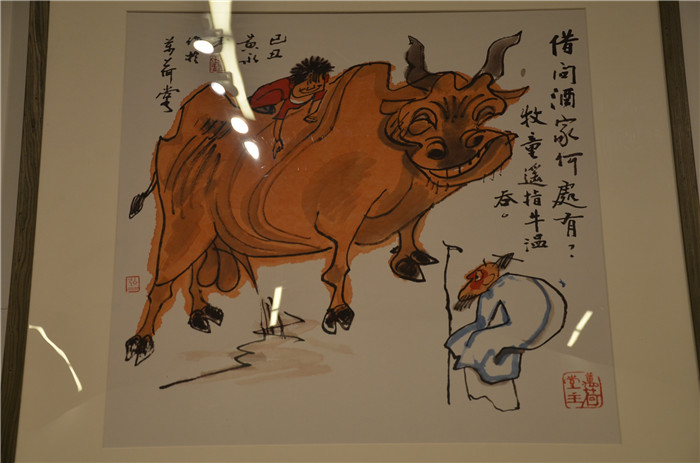 借问酒家何處有？
牧童遥指牛温
吞。
己丑
黄永
作於
萬荷堂
萬荷堂主